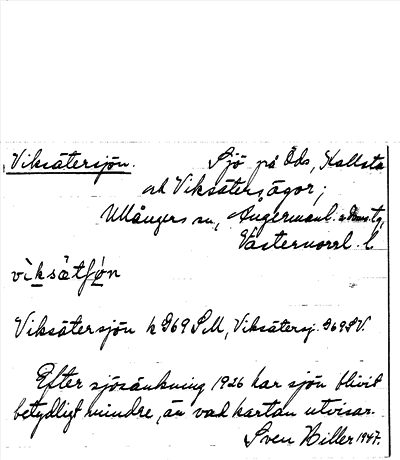 Viksätersjön. Sjö på Öds, Kallsta
och Viksäters ägor;
Ullångers sn, Ångermanl.
Västernorrl. l
viksätʃøn
Viksätersjön k D69 SM, Viksätersj. D69SV.
Efter sjösänkning 1926 har sjön blivit
betydligt mindre, än vad kartan utvisar.
Sven Hiller 1947.